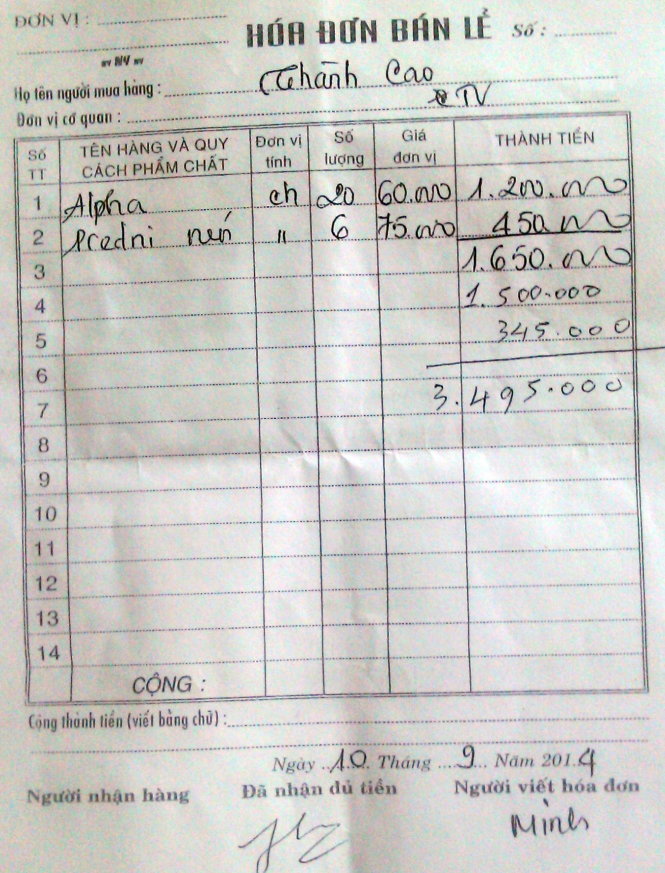 ĐƠN VỊ :
HÓA ĐƠN BÁN LẺ Số :
Họ tên người mua hàng : Thành Cao
TV
Đơn vị cơ quan :
Số TT TÊN HÀNG VÀ QUY CÁCH PHẨM CHẤT Đơn vị tính Số lượng Giá đơn vị THÀNH TIỀN
1 Alpha ch 20 60.000 1.200.000
2 Predni nén " 6 75.000 450.000
3 1.650.000
4 1.500.000
5 345.000
6
7 3.495.000
8
9
10
11
12
13
14
CỘNG :
Cộng thành tiền (viết bằng chữ) :
Ngày 10 Tháng 9 Năm 2014
Người nhận hàng Đã nhận đủ tiền Người viết hóa đơn
Minh